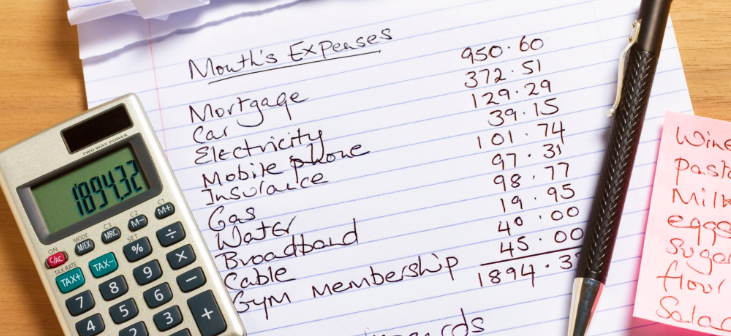 Month's Expenses
Mortgage 950.60
Car 372.51
Electricity 129.29
Mobile phone 39.15
Insurance 101.74
Gas 97.31
Water 98.77
Broadband 19.95
Cable 40.00
Gym membership 45.00
1894.3
TWO WAY POWER
1894.32
ON
C/AC
MODE
M/EX
MRC
M-
M+
TAX RATE
TAX+
TAX-
%
÷
7
8
9
×
4
5
6
−
3
+
Wine
Past
Milk
eggs
Sugar
flour
Salad